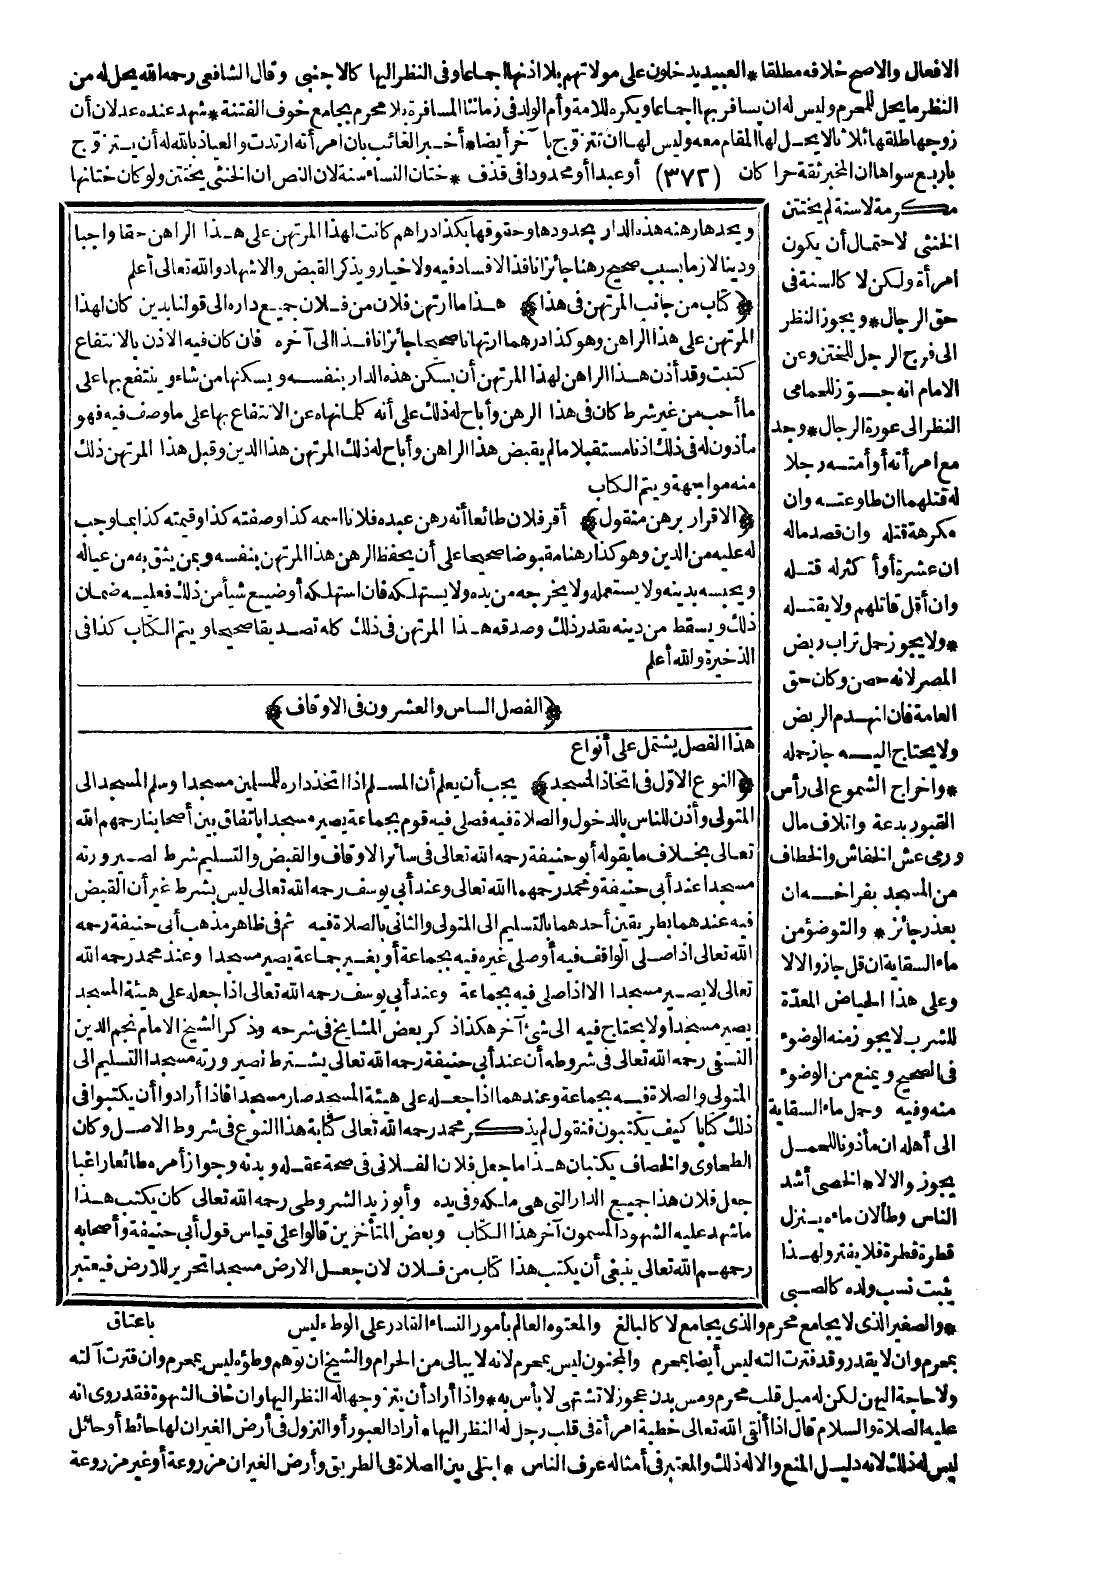 الافعال والاصح خلافه مطلقا * العبيد يدخلون على مولاتهم بلا اذنها اجماعا وفى النظر اليها كالاجنبى وقال الشافعى رحمه الله يحل له من
النظر ما يحل للمحرم وليس له ان يسافر بها اجماعا ويكره للامة وأم الولد فى زماننا المسافرة بلا محرم بجامع خوف الفتنة * شهد عنده عدلان أن
زوجها طلقها ثلاثا لا يحل لها المقام معه وليس لها ان تتزوج بآخر أيضا * أخبر الغائب بان امرأته ارتدت والعياذ بالله له أن يتزوج
باربع سواها ان المخبر ثقة حرا كان (٣٧٢) أو عبدا أو محدودا فى قذف * ختان النساء سنة لان النص ان الخنثى يختتن ولو كان ختانها
مكرمة لا سنة لم يختتن
الخنثى لاحتمال أن يكون
امرأة ولكن لا كالسنة فى
حق الرجال * ويجوز النظر
الى فرج الرجل للختن وعن
الامام انه جوّز للحمامى
النظر الى عورة الرجال * وجد
مع امرأته أو أمته رجلا
له قتلهما ان طاوعته وان
مكرهة قتله وان قصد ماله
ان عشرة أو أكثر له قتله
وان أقل قاتلهم ولا يقتله
* ولا يجوز حمل تراب ربض
المصر لانه حصن وكان حق
العامة فان انهدم الربض
ولا يحتاج اليه جاز حمله
* واخراج الشموع الى رأس
القبور بدعة واتلاف مال
ورمى عش الخفاش والخطاف
من المسجد بفراخه ان
بعذر جائز * والتوضؤ من
ماء السقاية ان قل جاز والا لا
وعلى هذا الحياض المعدّة
للشرب لا يجوز منه الوضوء
فى الصحيح ويمنع من الوضوء
منه وفيه وحمل ماء السقاية
الى أهله ان مأذونا للحمل
يجوز والا لا * الخصى أشد
الناس وطأ لان ماءه ينزل
قطرة قطرة فلا يفتر ولهذا
يثبت نسب ولده كالصبى
ويحدها رهنه هذه الدار بحدودها وحقوقها بكذا دراهم كانت لهذا المرتهن على هذا الراهن حقا واجبا
ودينا لازما بسبب صحيح رهنا جائزا نافذا لا فساد فيه ولا خيار ويذكر القبض والاشهاد والله تعالى أعلم
﴿كتاب من جانب المرتهن فى هذا﴾ هذا ما ارتهن فلان من فلان جميع داره الى قولنا بدين كان لهذا
المرتهن على هذا الراهن وهو كذا درهما ارتهانا صحيحا جائزا نافذا الى آخره فان كان فيه الاذن بالانتفاع
كتبت وقد أذن هذا الراهن لهذا المرتهن أن يسكن هذه الدار بنفسه ويسكنها من شاء وينتفع بها على
ما أحب من غير شرط كان فى هذا الرهن وأباح له ذلك على أنه كلما نهاه عن الانتفاع بها على ما وصف فيه فهو
مأذون له فى ذلك اذنا مستقبلا ما لم يقبض هذا الراهن وأباح له ذلك المرتهن هذا الدين وقبل هذا المرتهن ذلك
منه مواجهة ويتم الكتاب
﴿الاقرار برهن منقول﴾ أقر فلان طائعا أنه رهن عبده فلانا اسمه كذا وصفته كذا وقيمته كذا بما وجب
له عليه من الدين وهو كذا رهنا مقبوضا صحيحا على أن يحفظ الرهن هذا المرتهن بنفسه وبمن يثق به من عياله
ويحبسه بدينه ولا يستعمله ولا يخرجه من يده ولا يستهلكه فان استهلكه أو ضيع شيأ من ذلك فعليه ضمان
ذلك ويسقط من دينه بقدر ذلك وصدقه هذا المرتهن فى ذلك كله تصديقا صحيحا ويتم الكتاب كذا فى
الذخيرة والله أعلم
﴿الفصل الساس والعشرون فى الاوقاف﴾
هذا الفصل يشتمل على أنواع
﴿النوع الاوّل فى اتخاذ المسجد﴾ يجب أن يعلم أن المسلم اذا اتخذ داره للمسلمين مسجدا وسلم المسجد الى
المتولى وأذن للناس بالدخول والصلاة فيه فصلى فيه قوم بجماعة يصير مسجدا باتفاق بين أصحابنا رحمهم الله
تعالى بخلاف ما يقوله أبو حنيفة رحمه الله تعالى فى سائر الاوقاف والقبض والتسليم شرط لصيرورته
مسجدا عند أبى حنيفة ومحمد رحمهما الله تعالى وعند أبى يوسف رحمه الله تعالى ليس بشرط غير أن القبض
فيه عندهما بطريقين أحدهما بالتسليم الى المتولى والثانى بالصلاة فيه ثم فى ظاهر مذهب أبى حنيفة رحمه
الله تعالى اذا صلى الواقف فيه أو صلى غيره فيه بجماعة أو بغير جماعة يصير مسجدا وعند محمد رحمه الله
تعالى لا يصير مسجدا الا اذا صلى فيه بجماعة وعند أبى يوسف رحمه الله تعالى اذا جعله على هيئة المسجد
يصير مسجدا ولا يحتاج فيه الى شئ آخر هكذا ذكر بعض المشايخ فى شرحه وذكر الشيخ الامام نجم الدين
النسفى رحمه الله تعالى فى شروطه أن عند أبى حنيفة رحمه الله تعالى يشترط لصيرورته مسجدا التسليم الى
المتولى والصلاة فيه بجماعة وعندهما اذا جعله على هيئة المسجد صار مسجدا فاذا أرادوا أن يكتبوا فى
ذلك كتابا كيف يكتبون فنقول لم يذكر محمد رحمه الله تعالى كتابة هذا النوع فى شروط الاصل وكان
الطحاوى والخصاف يكتبان هذا ما جعل فلان الفلانى فى صحة عقله وبدنه وجواز أمره طائعا راغبا
جعل فلان هذا جميع الدار التى هى ملكه وفى يده وأبو زيد الشروطى رحمه الله تعالى كان يكتب هذا
ما شهد عليه الشهود المسمون آخر هذا الكتاب وبعض المتأخرين قالوا على قياس قول أبى حنيفة وأصحابه
رحمهم الله تعالى ينبغى أن يكتب هذا كتاب من فلان لان جعل الارض مسجدا تحرير للارض فيعتبر
باعتاق
* والصغير الذى لا يجامع محرم والذى يجامع لا كالبالغ والمعتوه العالم بأمور النساء القادر على الوطء ليس
بمحرم وان لا يقدر وقد فترت آلته ليس أيضا بمحرم والمجنون ليس بمحرم لانه لا يبالى من الحرام والشيخ ان توهم وطؤه ليس بمحرم وان فترت آلته
ولا حاجة اليهن لكن له ميل قلب محرم ومس بدن عجوز لا تشتهى لا بأس به * واذا أراد أن يتزوجها له النظر اليها وان خاف الشهوة فقد روى انه
عليه الصلاة والسلام قال اذا ألقى الله تعالى خطبة امرأة فى قلب رجل له النظر اليها * أراد العبور أو النزول فى أرض الغير ان لها حائط أو حائل
ليس له ذلك لانه دليل المنع والا له ذلك والمعتبر فى أمثاله عرف الناس * ابتلى بين الصلاة فى الطريق وأرض الغير ان مزروعة أو غير مزروعة